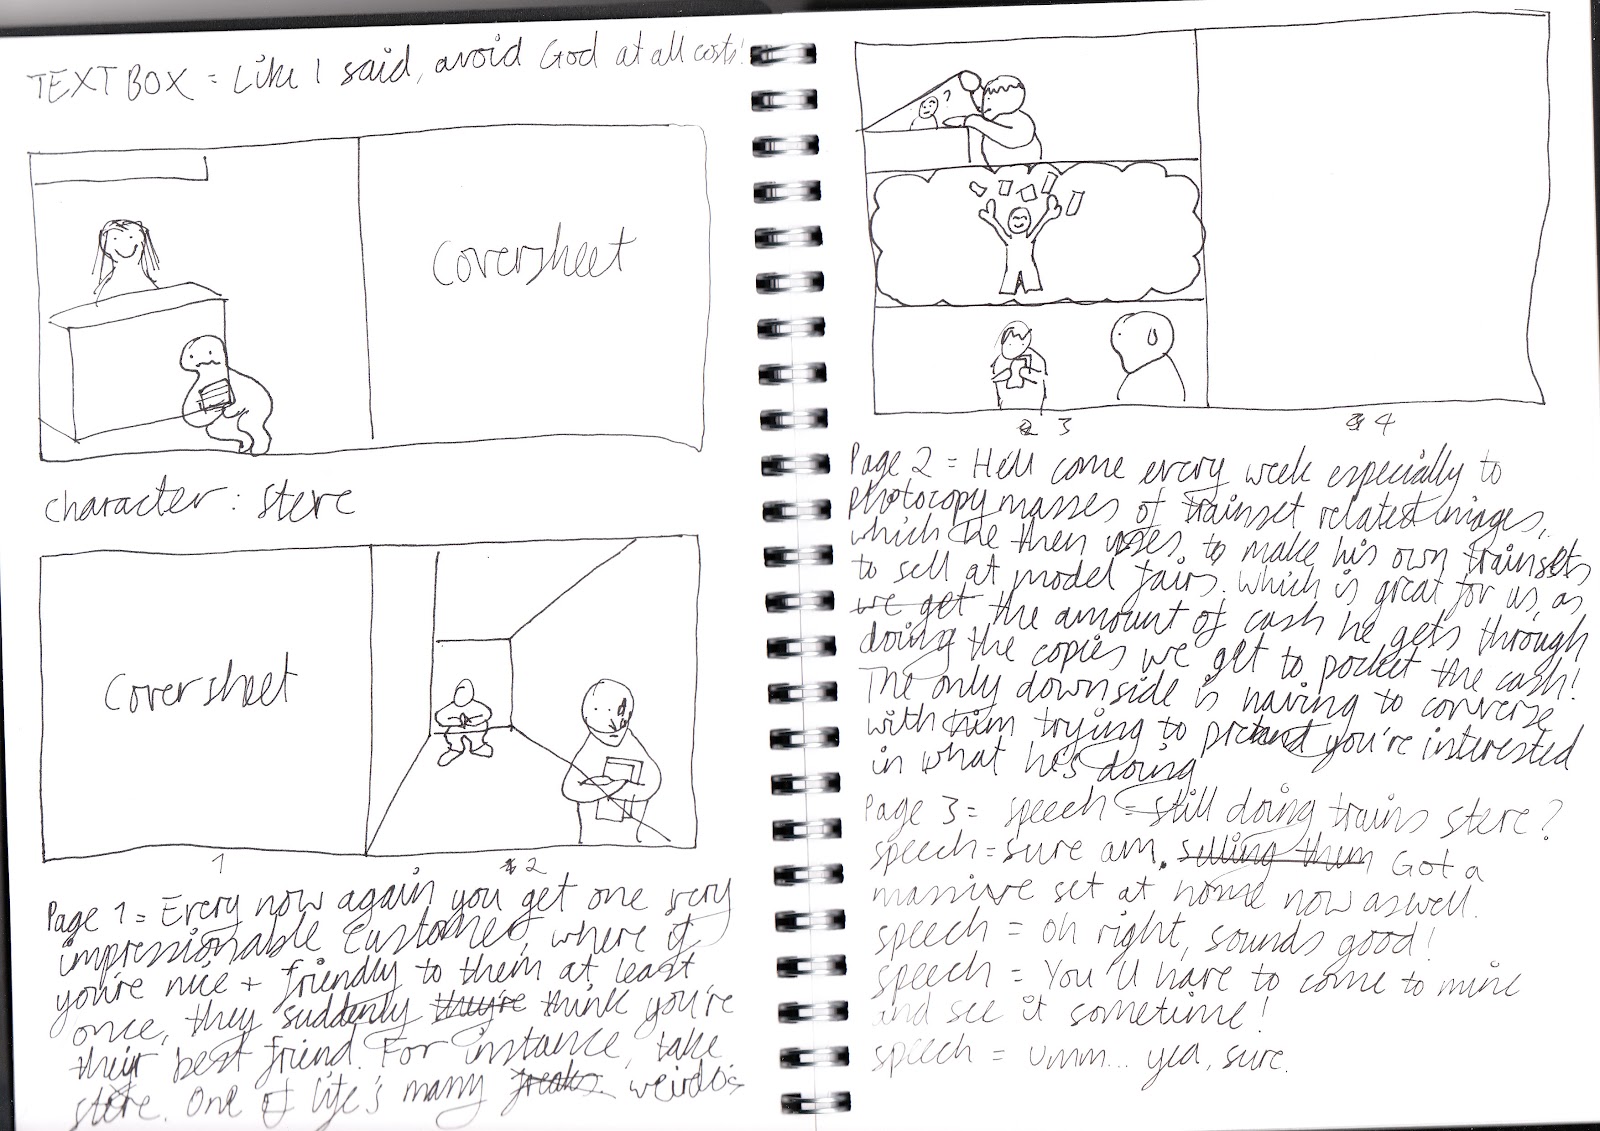 TEXT BOX = Like I said, avoid God at all costs!
Coversheet
character: steve
Coversheet
1
2
Page 1 = Every now again you get one very
impressionable customer, where if
you're nice + friendly to them at least
once, they suddenly they're think you're
their best friend. For instance, take
steve. One of life's many freaks. weirdo's
?
3
4
Page 2 = He'll come every week especially to
photocopy masses of trainset related images,
which he then uses to make his own trainsets
to sell at model fairs. Which is great for us, as
we get the amount of cash he gets through
doing the copies we get to pocket the cash!
The only downside is having to converse
with him trying to pretend you're interested
in what he's doing
Page 3 = speech = still doing trains steve?
speech = sure am. selling them Got a
massive set at home now aswell.
speech = oh right, sounds good!
speech = You'll have to come to mine
and see it sometime!
speech = umm... yea, sure.